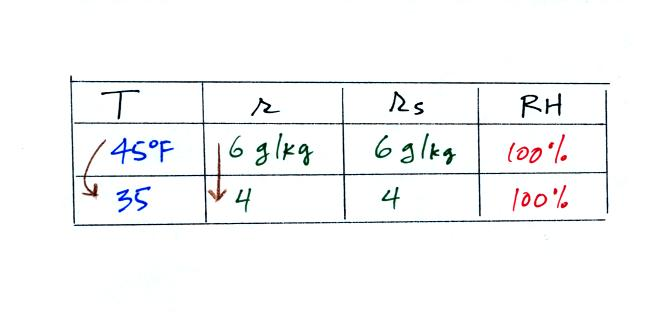 T r rs RH
45°F 6 g/kg 6 g/kg 100%
35 4 4 100%